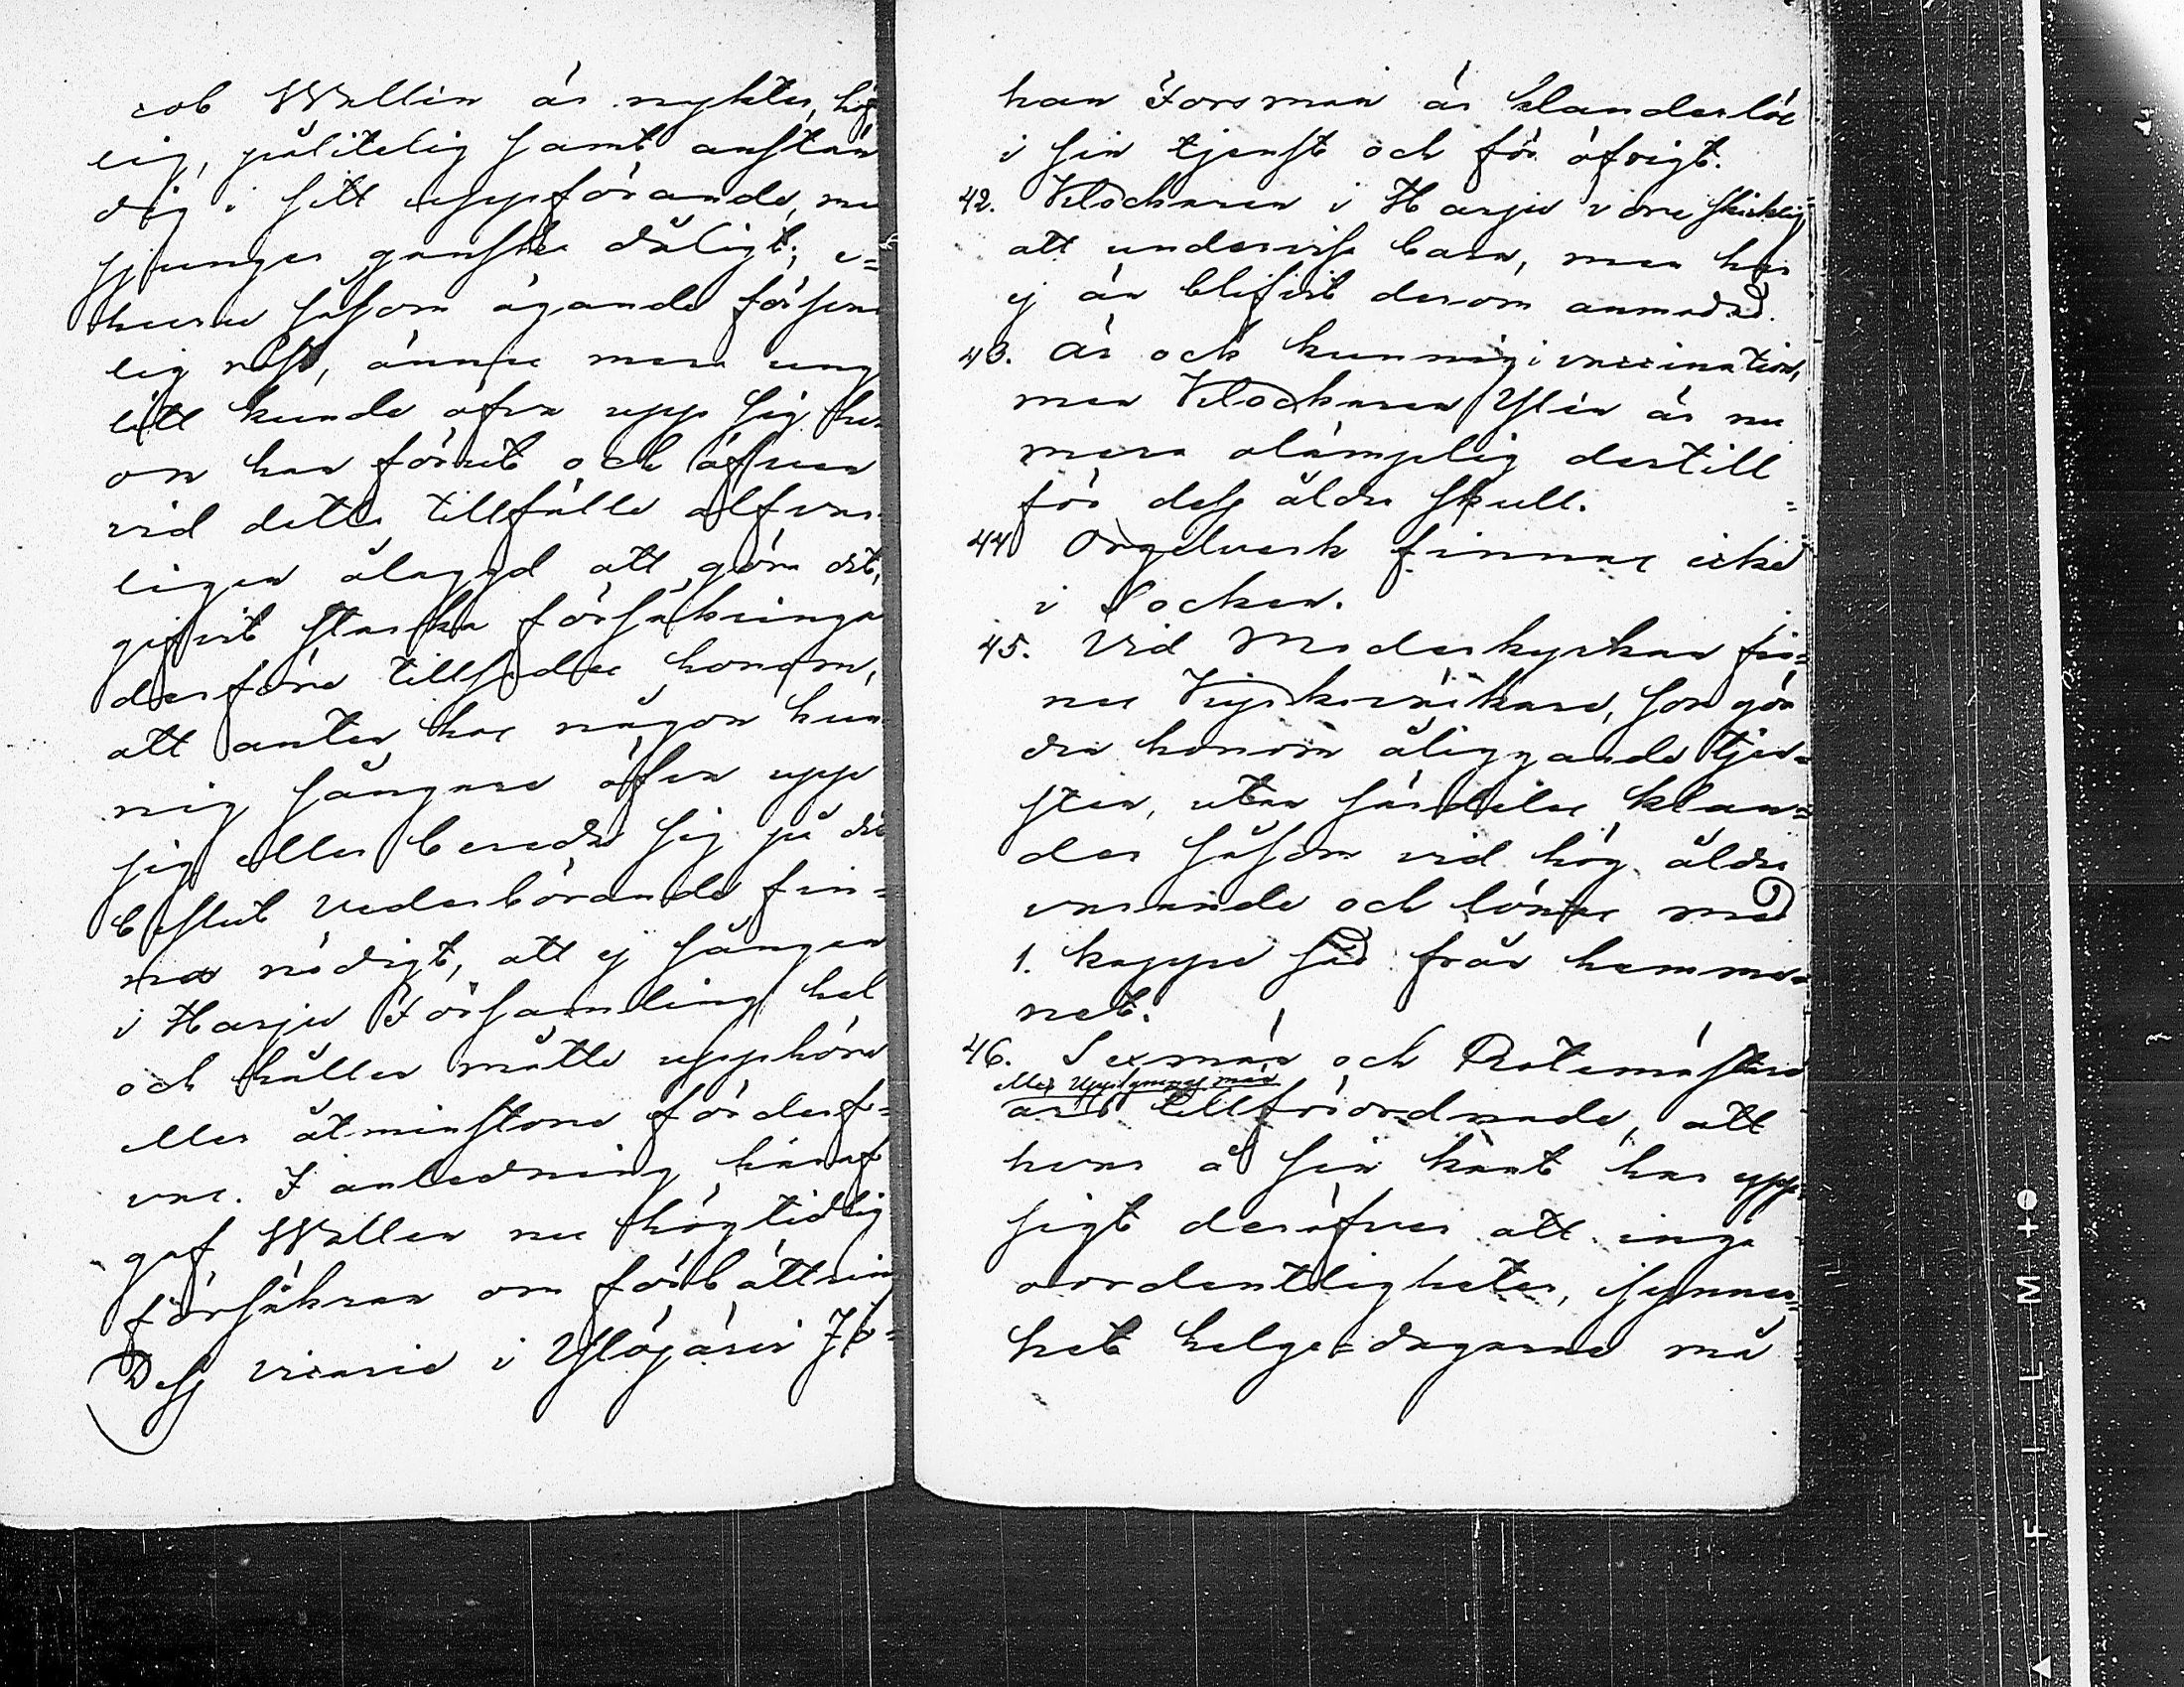 cob Wallin är nykter, hög
lig, pålitelig samt anstän
dig i sitt uppförande, me
sjunger ganska dåligt; e=
huru såsom ägande försva
lig röst, ännu mera ung
lätt kunde öfva upp sig he
om han förut och äfven
vid detta tillfälle alfvar
ligen ålaggd att göra det,
gifvit starka försäkringar
derföre tillsades honom,
att antin hos någon kun
nig sångare öfva upp
sig eller bereda sig på det
beslut vederbörande fin=
na nödigt, att ej sången
i Harju Församling hel
och hållen måtte upphöra
eller åtminstone förderf=
vas. I anledning häraf
gaf Wallin nu högtidlig
försäkran om förbättrin
Dess vicarie i Ylöjärvi Jo=
han Forsman är klanderlös
i sin tjenst och för öfrigt.
42. Klockaren i Harju vore skicklig
att undervisa barn, men har
ej än blifvit derom anmodad.
43. är och kunnig i vaccination,
men Klockaren Ylén är nu
mera olämplig dertill
för dess ålder skull.
44 Orgelverk finnas icke
i Socken.
45. Vid Moderkyrkan fin=
nes Kyrkoväktare, som gör
den honom åliggande tjen=
sten, utan särdeles klan=
der såsom vid hög ålder
varande och lönas med
1. kappe säd från hemma=
net.
46. Sexmän och Rotemästare
eller Uppsyningsmän
äro tillförordnade, att
hvar å sin kant har upp
sigt deröfver att inga
oordentligheter, isynner=
het helgedagarne må
FILM